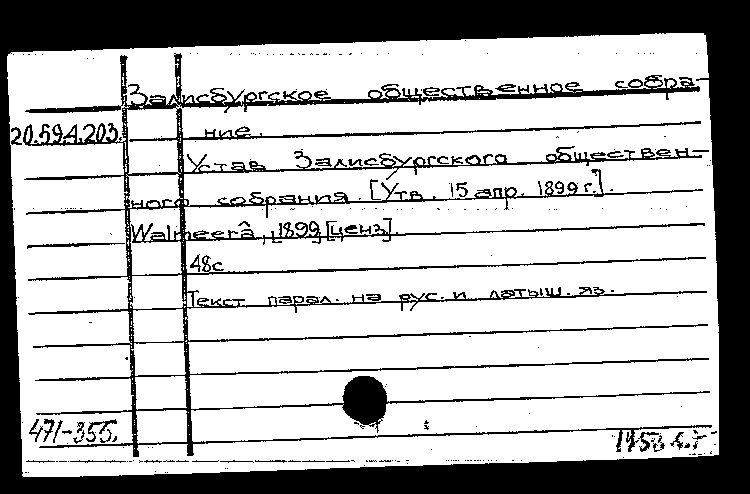 Залисбургское общественное собра-
20.59.4.203. ние.
Устав Залисбургского обществен-
ного собрания. [Утв. 15 апр. 1899 г.].
Walmeerâ, 1899 [ценз].
48с
Текст парал. на рус. и латыш. яз.
471-355.